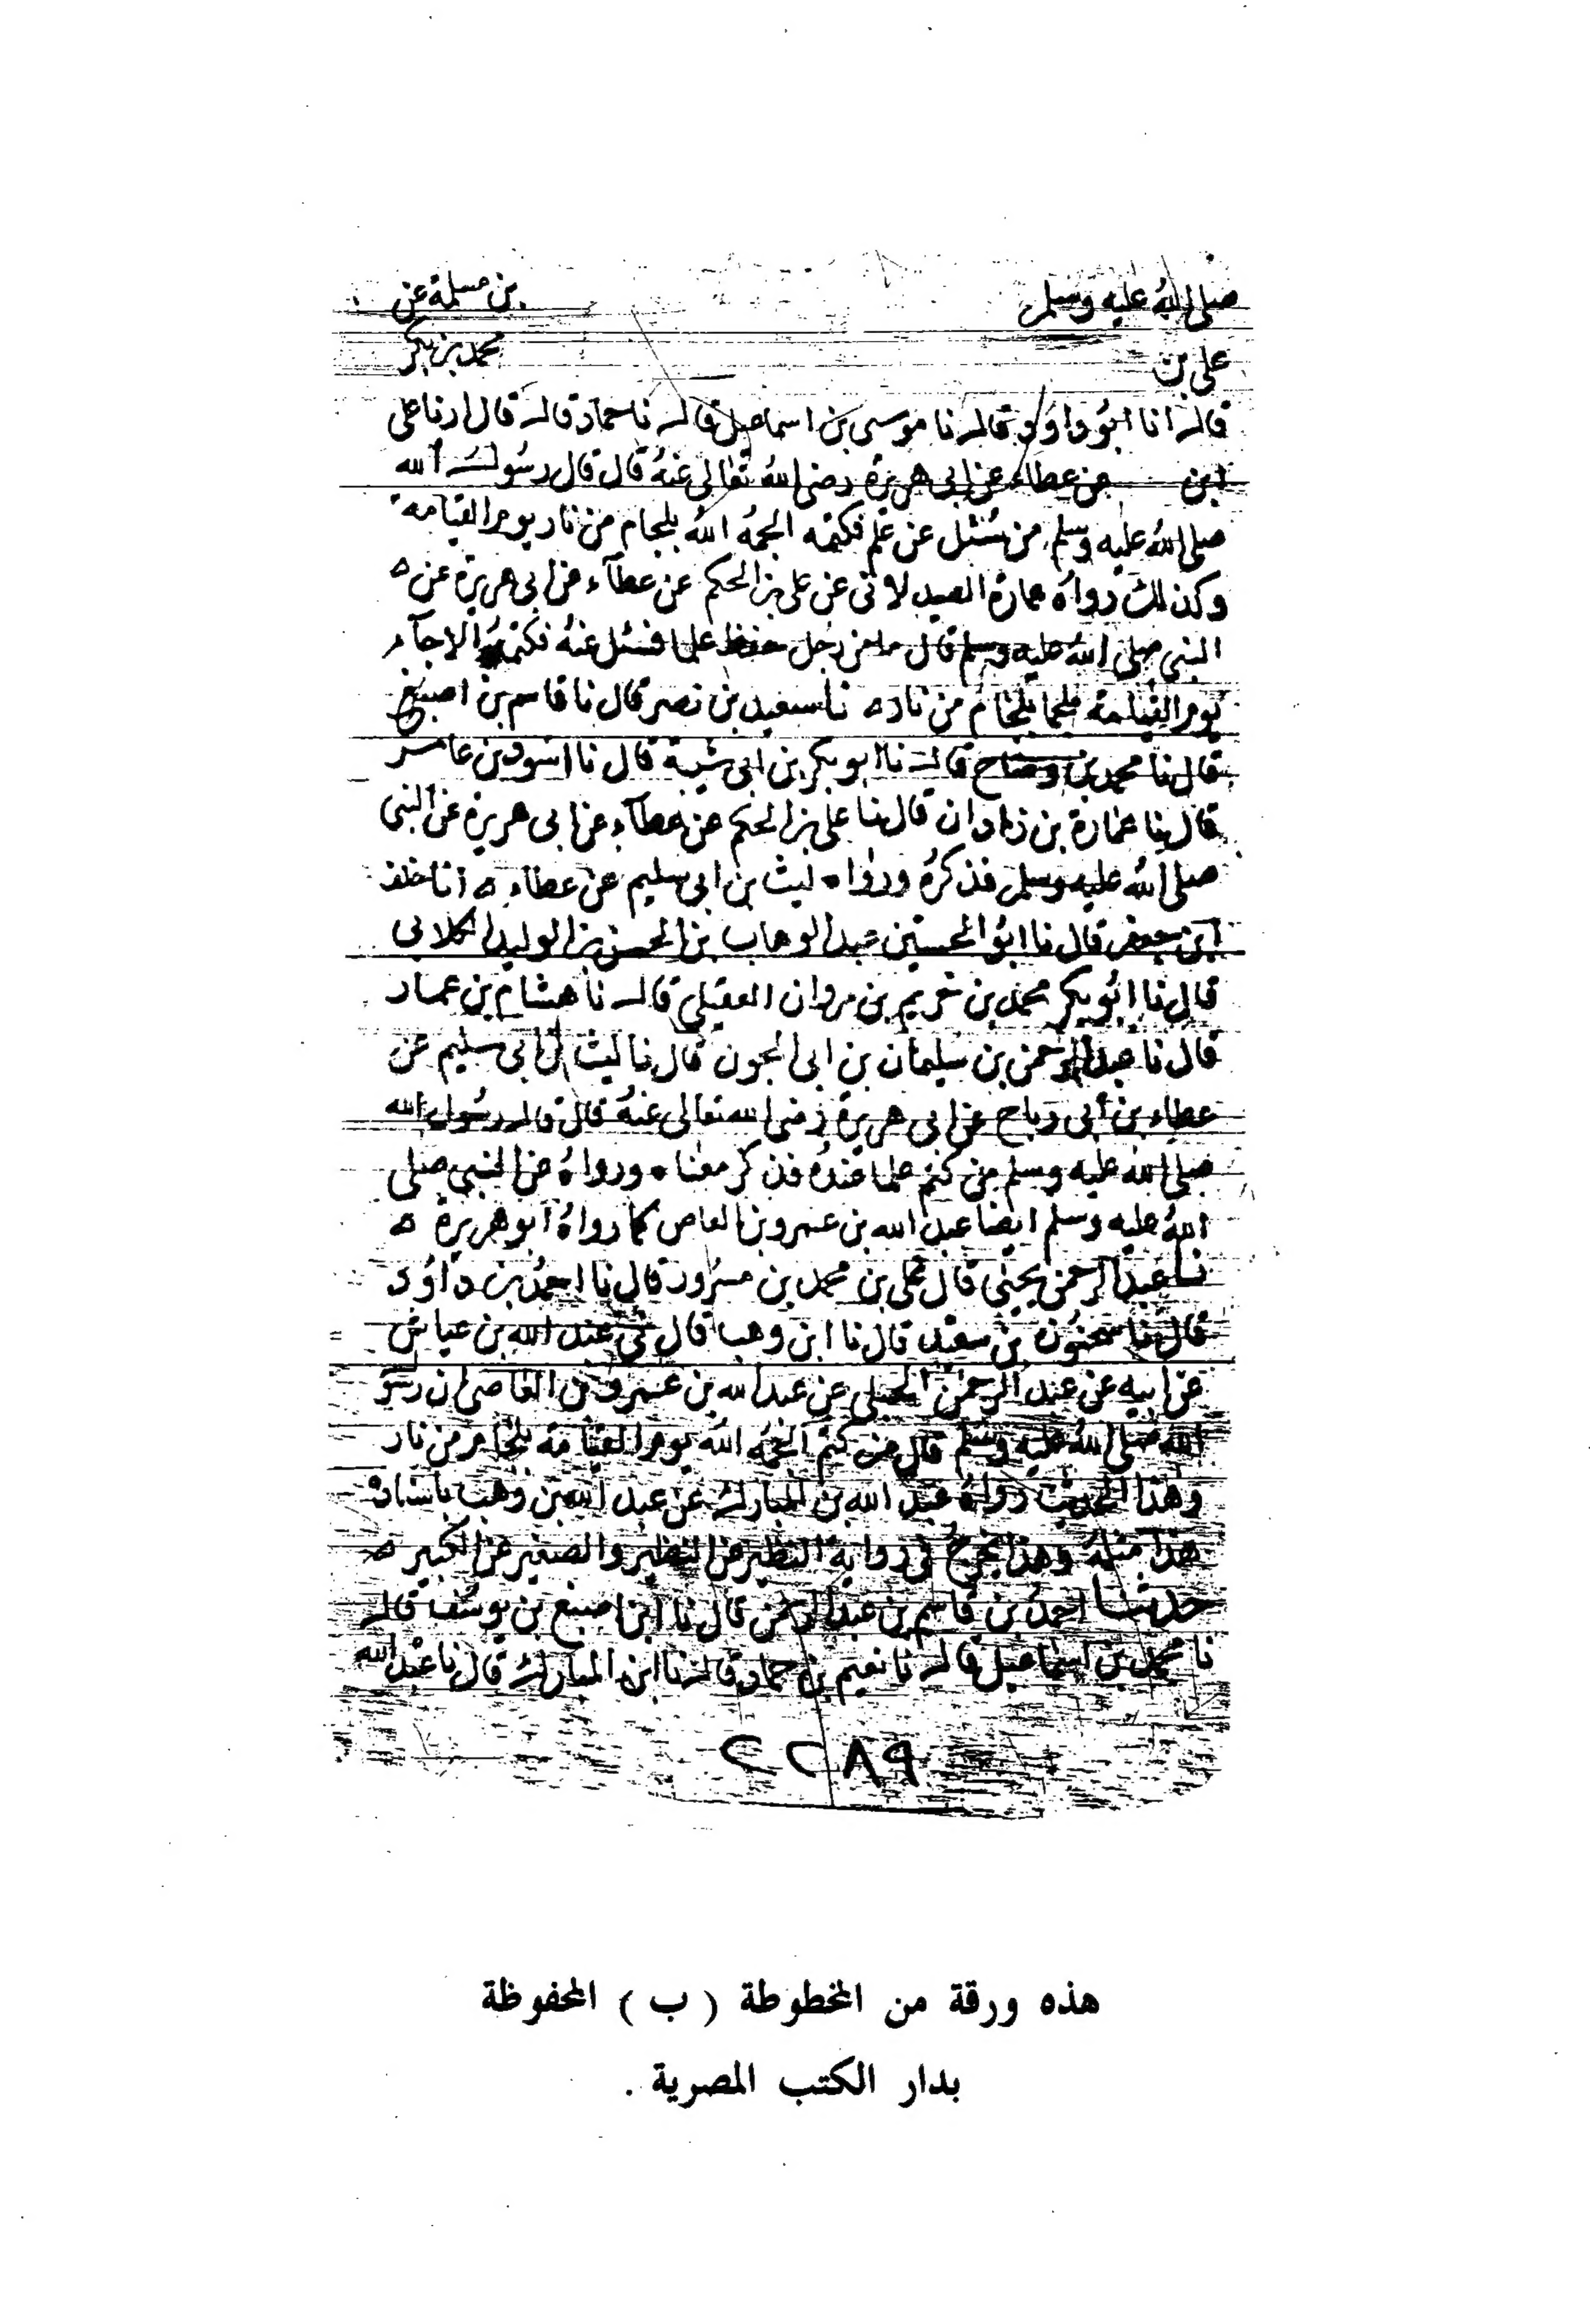 صلى الله عليه وسلم بن مسلمة عن
على بن محمد بن بكر
قال انا ابو داود قال نا موسى بن اسماعيل قال نا حماد قال قال ارنا على
ابن عن عطاء عن ابى هريرة رضى الله تعالى عنه قال قال رسول الله
صلى الله عليه وسلم من سئل عن علم فكتمه الجمه الله بلجام من نار يوم القيامة
وكذلك رواه عمارة الصيدلانى عن على بن الحكم عن عطآء عن ابى هريرة عن
النبى صلى الله عليه وسلم قال ما من رجل حفظ علما فسئل عنه فكتمه الا جآء
يوم القيامة ملجما بلجام من نار نا سعيد بن نصر قال نا قاسم بن اصبغ
قال نا محمد بن وضاح قال نا ابو بكر بن ابى شيبة قال نا اسود بن عامر
قال نا عمارة بن زادان قال نا على بن الحكم عن عطآء عن ابى هريرة عن النبى
صلى الله عليه وسلم فذكره ورواه ليث بن ابى سليم عن عطاء انا خلف
ابن جعفر قال نا ابو الحسين عبد الوهاب بن الحسن بن الوليد الكلابى
قال نا ابو بكر محمد بن خريم بن مروان العقيلى قال نا هشام بن عمار
قال نا عبد الرحمن بن سليمان بن ابى الجون قال نا ليث بن ابى سليم عن
عطاء بن أبى رباح عن ابى هريرة رضى الله تعالى عنه قال قال رسول الله
صلى الله عليه وسلم من كتم علما عنده فذكر معناه ورواه عن النبى صلى
الله عليه وسلم ايضا عبد الله بن عمرو بن العاص كما رواه ابو هريرة
نا عبد الرحمن يحيى قال على بن محمد بن مسرور قال نا احمد بن داود
قال نا سحنون بن سعيد قال نا ابن وهب قال ثنى عبد الله بن عياش
عن ابيه عن عبد الرحمن الحبلى عن عبد الله بن عمرو بن العاصى ان رسو
الله صلى الله عليه وسلم قال من كتم الجمه الله يوم القيامة بلجام من نار
وهذا الحديث رواه عبد الله بن المبارك عن عبد الله بن وهب باسناده
هذا مثله وهذا يخرج فى رواية النظير عن النظير والصغير عن الكبير
حدثنا احمد بن قاسم بن عبد الرحمن قال نا ابن اصبغ بن يوسف قال
نا محمد بن اسماعيل قال نا نعيم بن حماد قال نا ابن المبارك قال نا عبد الله
هذه ورقة من المخطوطة ( ب ) المحفوظة
بدار الكتب المصرية .